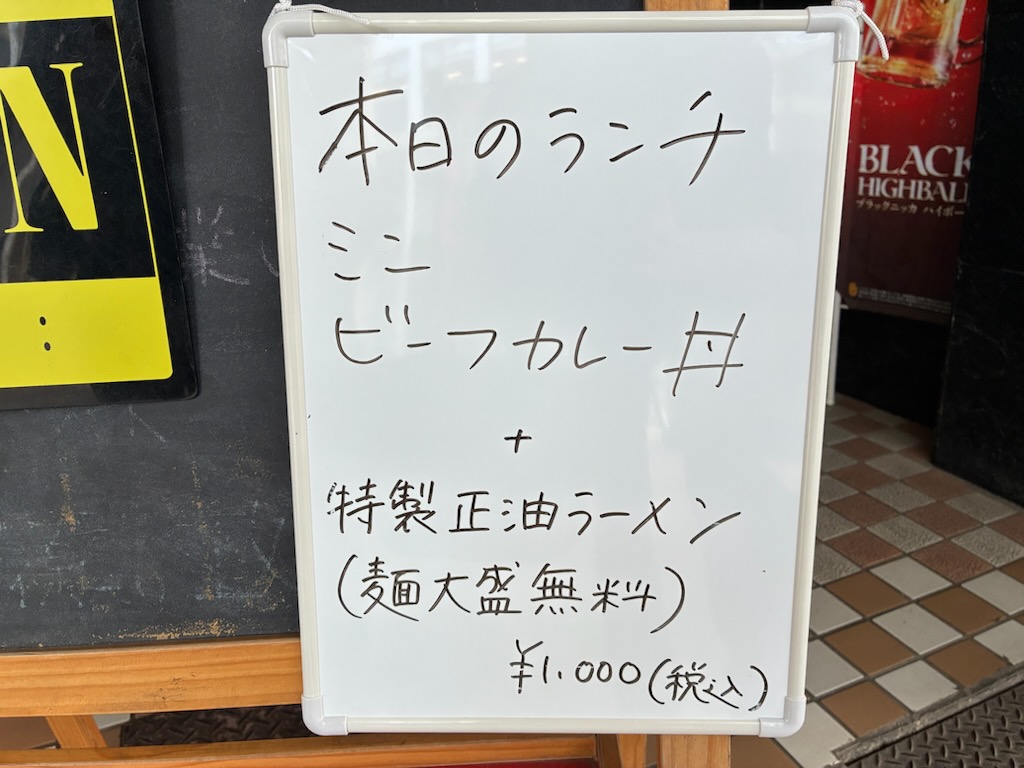 本日のランチ
ミニ
ビーフカレー丼
+
特製正油ラーメン
(麺大盛無料)
¥1.000(税込)
N
:
BLACK
HIGHBALL
ブラックニッカ ハイボー